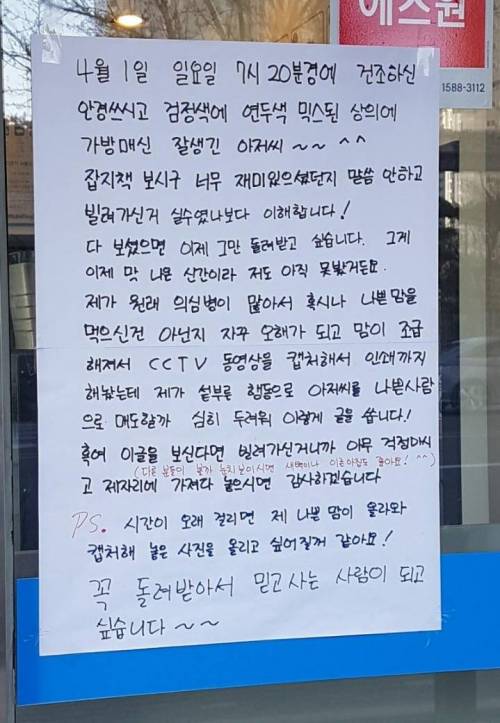 에스원
1588-3112
4월 1일 일요일 7시 20분경에 건조하신
안경쓰시고 검정색에 연두색 믹스된 상의에
가방매신 잘생긴 아저씨~~ ^^
잡지책 보시구 너무 재미있으셨던지 말씀 안하고
빌려가신거 실수였나보다 이해합니다!
다 보셨으면 이제 그만 돌려받고 싶습니다. 그게
이제 막 나온 신간이라 저도 아직 못봤거든요.
제가 원래 의심병이 많아서 혹시나 나쁜맘을
먹으신건 아닌지 자꾸 오해가 되고 맘이 조급
해져서 CCTV 동영상을 캡처해서 인쇄까지
해놨는데 제가 섣부른 행동으로 아저씨를 나쁜사람
으로 매도할까 심히 두려워 이렇게 글을 씁니다!
혹여 이글을 보신다면 빌려가신거니까 아무 걱정마시
(다른 분들이 볼까 눈치 보이시면 새벽이나 이른아침도 좋아요! ^^)
고 제자리에 가져다 놓으시면 감사하겠습니다
PS. 시간이 오래 걸리면 제 나쁜 맘이 올라와
캡처해 놓은 사진을 올리고 싶어질꺼 같아요!
꼭 돌려받아서 믿고 사는 사람이 되고
싶습니다~~